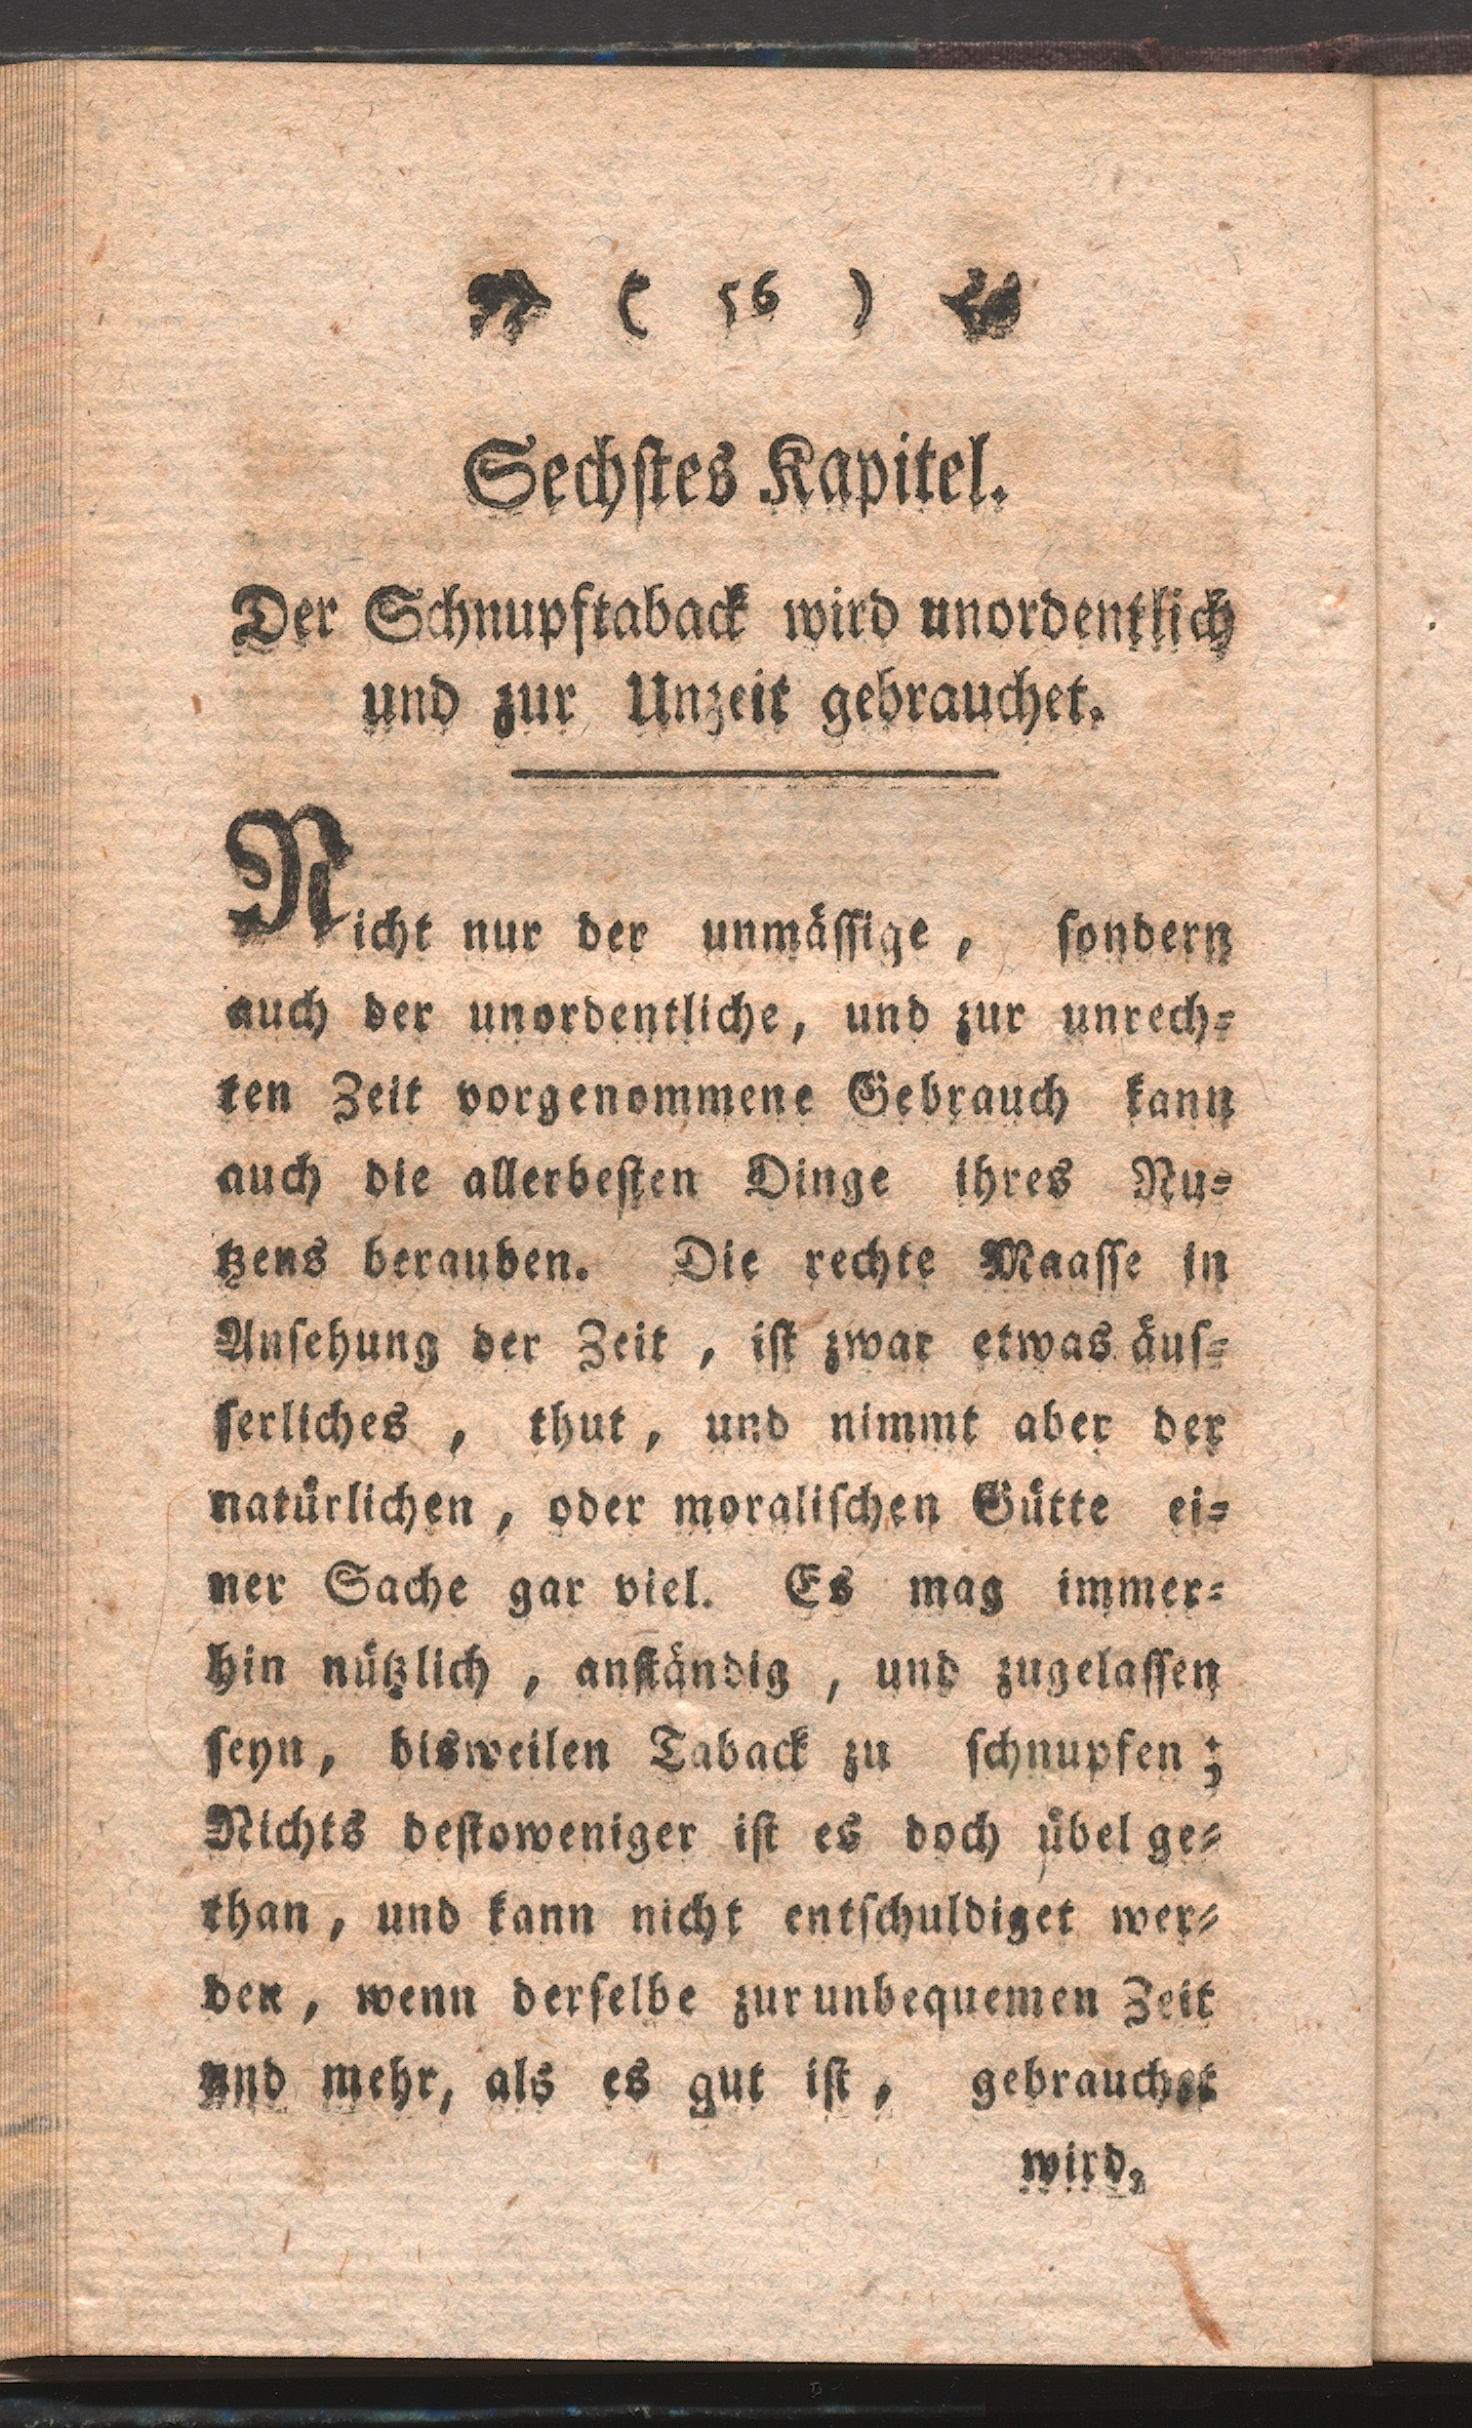 ( 56 )
Sechstes Kapitel.
Der Schnupftaback wird unordentlich
und zur Unzeit gebrauchet.
Nicht nur der unmässige, sondern
auch der unordentliche, und zur unrech-
ten Zeit vorgenommene Gebrauch kann
auch die allerbesten Dinge ihres Nu-
tzens berauben. Die rechte Maasse in
Ansehung der Zeit, ist zwar etwas äus-
serliches, thut, und nimmt aber der
natürlichen, oder moralischen Gütte ei-
ner Sache gar viel. Es mag immer-
hin nützlich, anständig, und zugelassen
seyn, bisweilen Taback zu schnupfen;
Nichts destoweniger ist es doch übel ge-
than, und kann nicht entschuldiget wer-
den, wenn derselbe zur unbequemen Zeit
und mehr, als es gut ist, gebrauchet
wird,